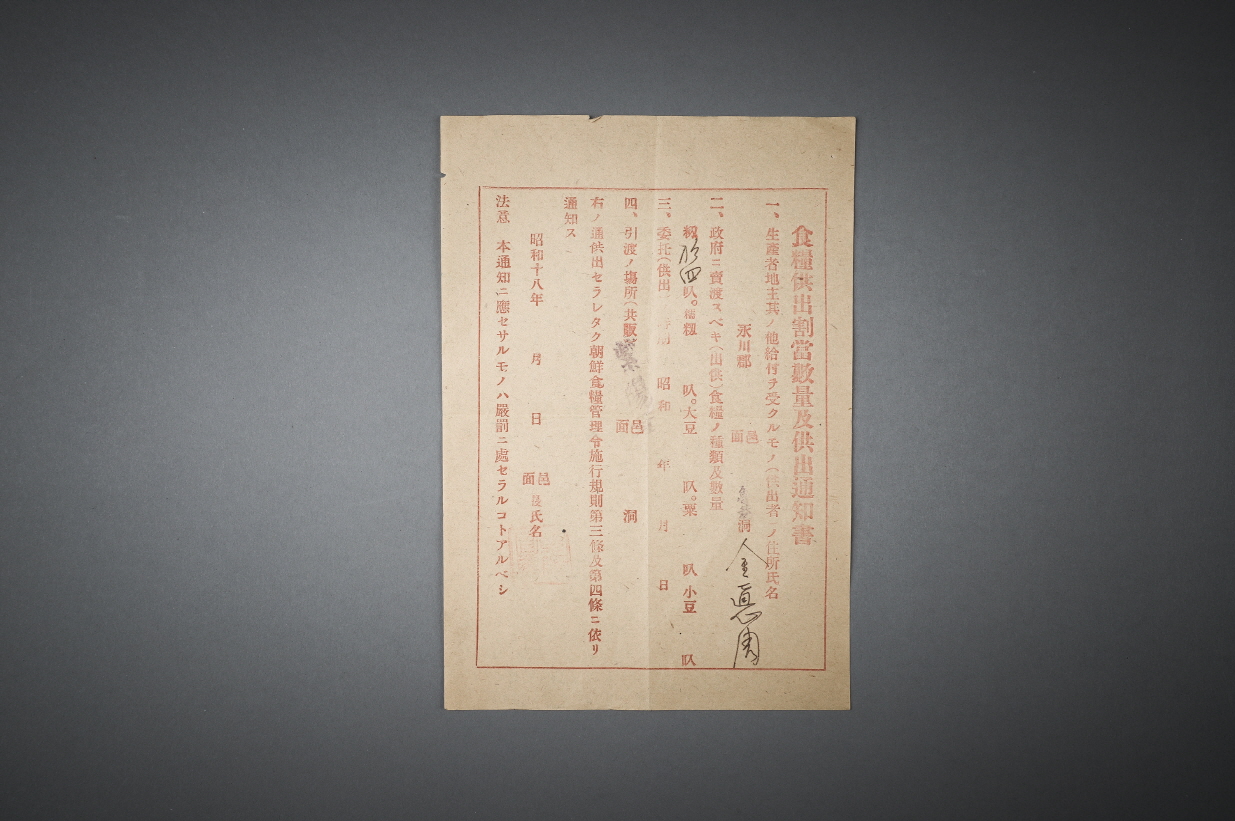 食糧供出割當數量及供出通知書
一、生產者地主其ノ他給付ヲ受クルモノ(供出者)ノ住所氏名
永川郡 邑面 洞
二、政府ニ賣渡スベキ(出供)食糧ノ種類及數量
籾 四叺。糯籾 叺。大豆 叺。粟 叺 小豆 叺
三、委托(供出) 昭和 年 月 日
四、引渡ノ場所(共販 邑面 洞
右ノ通供出セラレタク朝鮮食糧管理令施行規則第三條及第四條ニ依リ
通知ス
昭和十八年 月 日 邑面長氏名
法意 本通知ニ應セサルモノハ嚴罰ニ處セラルコトアルベシ